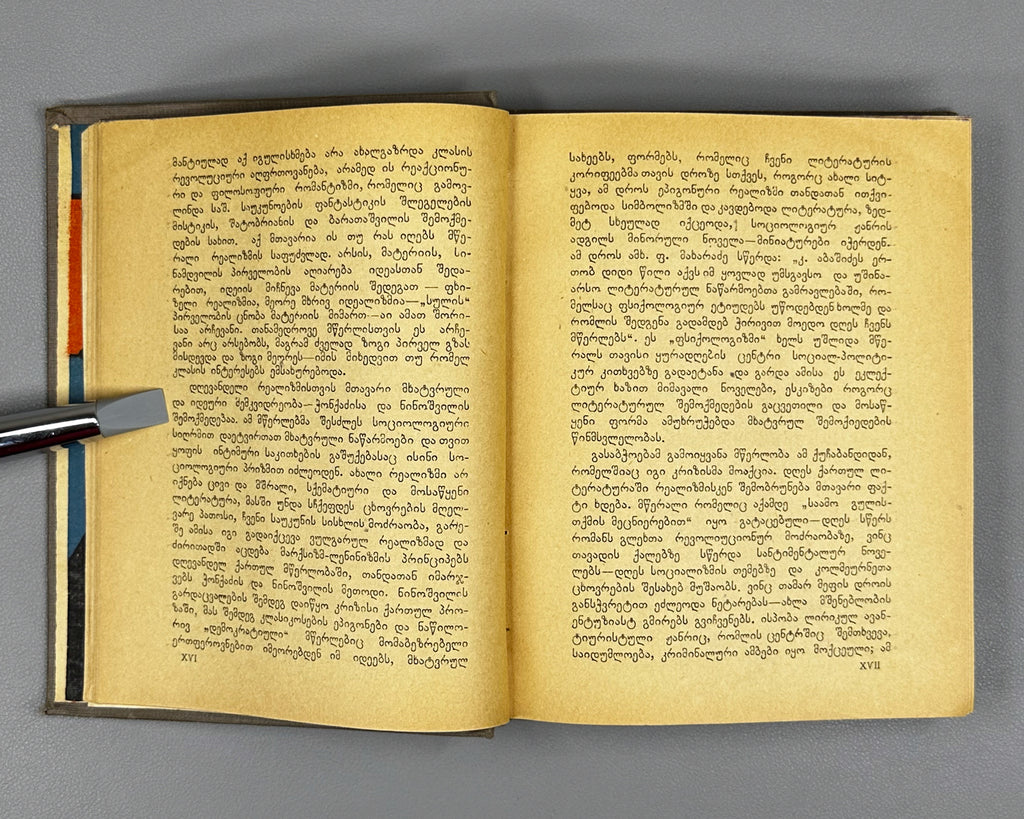 მანტიულად აქ იგულისხმება არა ახალგაზრდა კლასის
რევოლუციური აღფრთოვანება, არამედ ის რეაქციონუ-
რი და ფილოსოფიური რომანტიზმი, რომელიც გამოვ-
ლინდა საშ. საუკუნოების ფანტასტიკის შლეგელების
მისტიკის, შატობრიანის და ბარათაშვილის შემოქმე-
დების სახით. აქ მთავარია ის თუ რას იღებს მწე-
რალი რეალიზმის საფუძვლად. არსის, მატერიის, სი-
ნამდვილის პირველობის აღიარება იდეასთან შედა-
რებით, იდეის მიჩნევა მატერიის შედეგათ — ფხი-
ზელი რეალიზმია, მეორე მხრივ იდეალიზმია—„სულის“
პირველობის ცნობა მატერიის მიმართ—აი ამათ შორი-
საა არჩევანი. თანამედროვე მწერლისთვის ეს არჩე-
ვანი არც არსებობს, მაგრამ ძველად ზოგი პირველ გზას
მისდევდა და ზოგი მეორეს—იმის მიხედვით თუ რომელ
კლასის ინტერესებს ემსახურებოდა.
დღევანდელი რეალიზმისთვის მთავარი მხატვრული
და იდეური შემკვიდრეობა—ჭონქაძისა და ნინოშვილის
შემოქმედებაა. ამ მწერლებმა შესძლეს სოციოლოგიური
სიღრმით დაეტვირთათ მხატვრული ნაწარმოები და თვით
ყოფის ინტიმური საკითხების გაშუქებასაც ისინი სო-
ციოლოგიური პრიზმით იძლეოდენ. ახალი რეალიზმი არ
იქნება ცივი და მშრალი, სქემატიური და მოსაწყენი
ლიტერატურა, მასში უნდა სჩქეფდეს ცხოვრების მღელ-
ვარე პათოსი, ჩვენი საუკუნის სისხლის მოძრაობა, გარე-
შე ამისა იგი გადაიქცევა ვულგარულ რეალიზმად და
ძირითადში აცდება მარქსიზმ-ლენინიზმის პრინციპებს
დღევანდელ ქართულ მწერლობაში, თანდათან იმარჯ-
ვებს ჭონქაძის და ნინოშვილის მეთოდი. ნინოშვილის
გარდაცვალების შემდეგ დაიწყო კრიზისი ქართულ პრო-
ზაში, მას შემდეგ კლასიკოსების ეპიგონები და ნაწილო-
რივ „დემოკრატიული“ მწერლებიც მომაბეზრებელი
ერთფეროვნებით იმეორებდენ იმ იდეებს, მხატვრულ
XVI
სახეებს, ფორმებს, რომელიც ჩვენი ლიტერატურის
კორიფეებმა თავის დროზე სთქვეს, როგორც ახალი სიტ-
ყვა, ამ დროს ეპიგონური რეალიზმი თანდათან ითქვი-
ფებოდა სიმბოლიზმში და კავდებოდა ლიტერატურა, ზედ-
მეტ სხეულად იქცეოდა, სოციოლოგიურ ჟანრის
ადგილს მინორული ნოველა—მინიატურები იჭერდენ.
ამ დროს ამხ. ფ. მახარაძე სწერდა: „კ. აბაშიძეს ერ-
თობ დიდი წილი აქვს იმ ყოვლად უმსგავსო და უშინა-
არსო ლიტერატურულ ნაწარმოებთა გამრავლებაში, რო-
მელსაც ფსიქოლოგიურ ეტიუდებს უწოდებდენ ხოლმე და
რომლის შედგენა გადამდებ ჭირივით მოედო დღეს ჩვენს
მწერლებს“. ეს „ფსიქოლოგიზმი“ ხელს უშლიდა მწე-
რალს თავისი ყურადღების ცენტრი სოციალ-პოლიტი-
კურ კითხვებზე გადაეტანა და გარდა ამისა ეს ეკლექ-
ტიურ ხაზით მიმავალი ნოველები, ესკიზები როგორც
ლიტერატურულ შემოქმედების გაცვეთილი და მოსაწ-
ყენი ფორმა ამუხრუჭებდა მხატვრულ შემოქიედების
წინმსვლელობას.
გასაბჭოებამ გამოიყვანა მწერლობა ამ ქუჩაბანდიდან,
რომელშიაც იგი კრიზისმა მოაქცია. დღეს ქართულ ლი-
ტერატურაში რეალიზმისკენ შემობრუნება მთავარი ფაქ-
ტი ხდება. მწერალი რომელიც აქამდე „საამო გულის-
თქმის მეცნიერებით“ იყო გატაცებული—დღეს სწერს
რომანს გლეხთა რევოლიუციონურ მოძრაობაზე, ვინც
თავადის ქალებზე სწერდა სანტიმენტალურ ნოვე-
ლებს—დღეს სოციალიზმის თემებზე და კოლმეურნეთა
ცხოვრების შესახებ მუშაობს. ვინც თამარ მეფის დროის
განსჭვრეტით ეძლეოდა ნეტარებას—ახლა მშენებლობის
ენტუზიასტ გმირებს გვიჩვენებს. ისპობა ლირიკულ ავან-
ტიურისტული ჟანრიც, რომლის ცენტრშიც შემთხვევა,
საიდუმლოება, კრიმინალური ამბები იყო მოქცეული; ამ
XVII